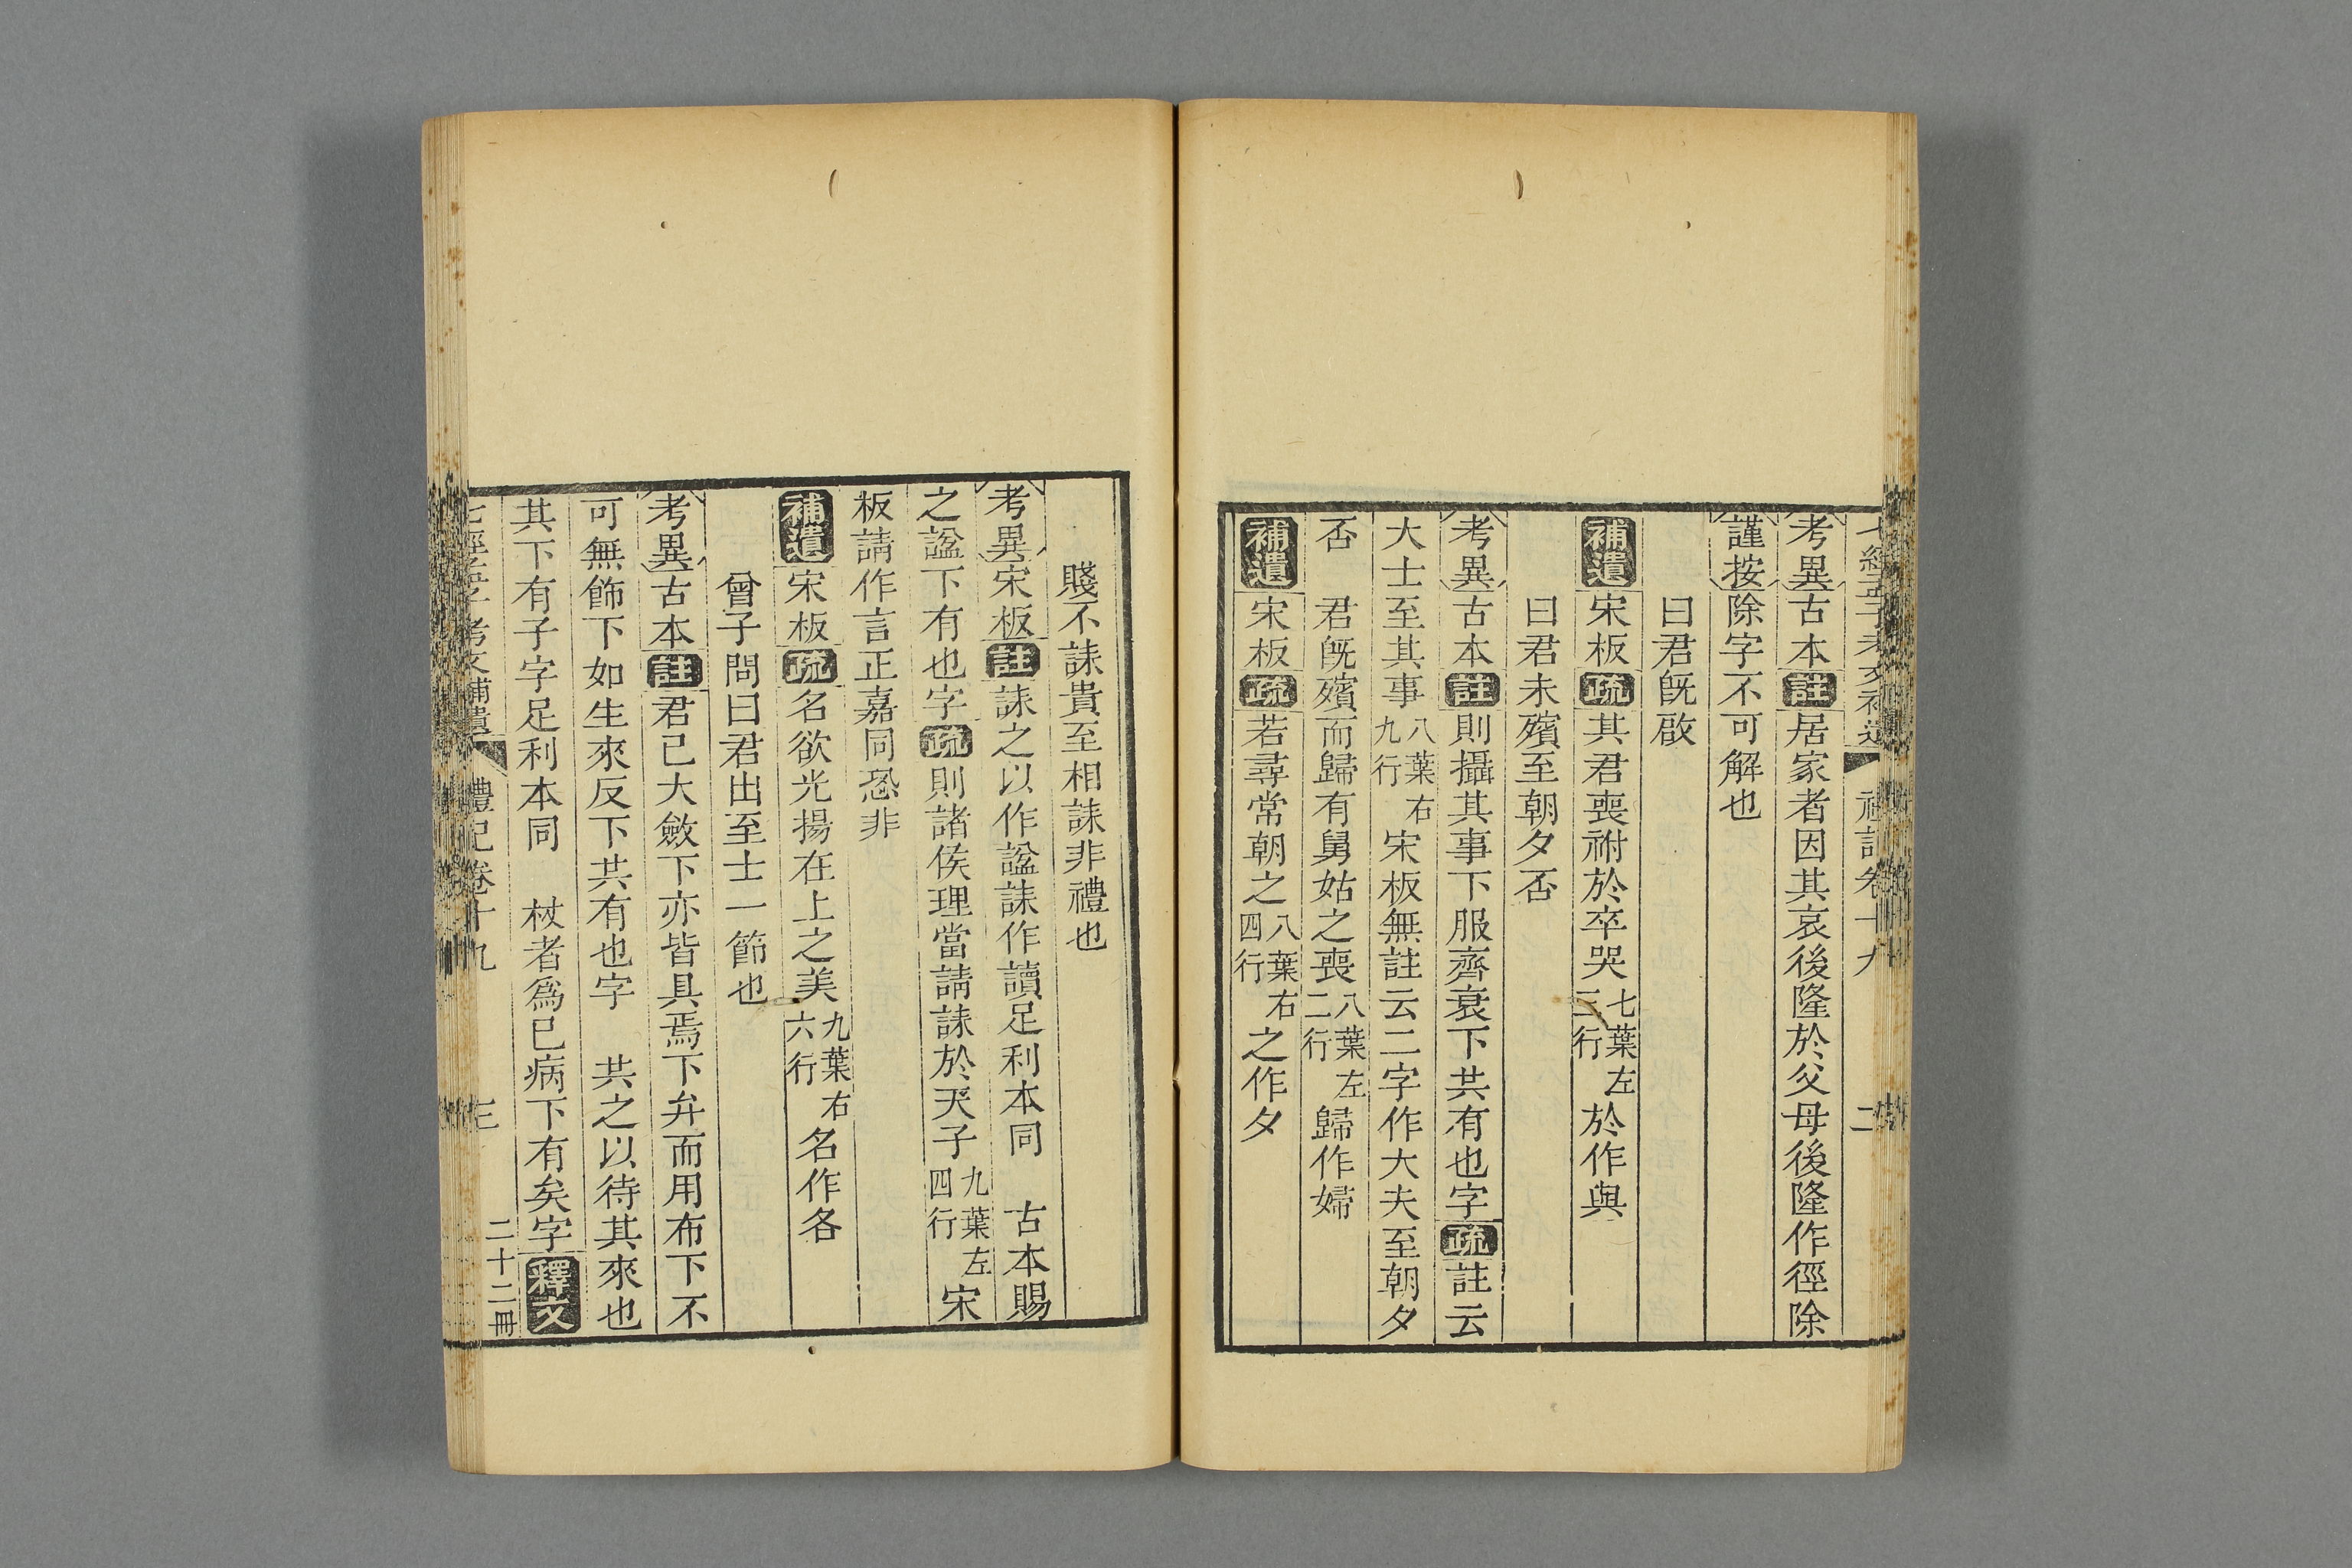 七經孟子考文補遺 禮記卷十九 二
考異古本註居家者因其哀後隆於父母後隆作徑除
謹按除字不可解也
曰君既啟
補遺宋板疏其君喪祔於卒哭七葉左三行於作與
曰君未殯至朝夕否
考異古本註則攝其事下服齊衰下共有也字疏註云
大士至其事八葉右九行宋板無註云二字作大夫至朝夕
否 君既殯而歸有舅姑之喪八葉左二行歸作婦
補遺宋板疏若尋常朝之八葉右四行之作夕
賤不誄貴至相誄非禮也
考異宋板註誄之以作謚誄作讀足利本同 古本賜
之謚下有也字疏則諸侯理當請誄於天子九葉左四行宋
板請作言正嘉同恐非
補遺宋板疏名欲光揚在上之美九葉右六行名作各
曾子問曰君出至士一節也
考異古本註君已大斂下亦皆具焉下弁而用布下不
可無飾下如生來反下共有也字 共之以待其來也
其下有子字足利本同 杖者為已病下有矣字釋文
七經孟子考文補遺 禮記卷十九 三 二十二冊